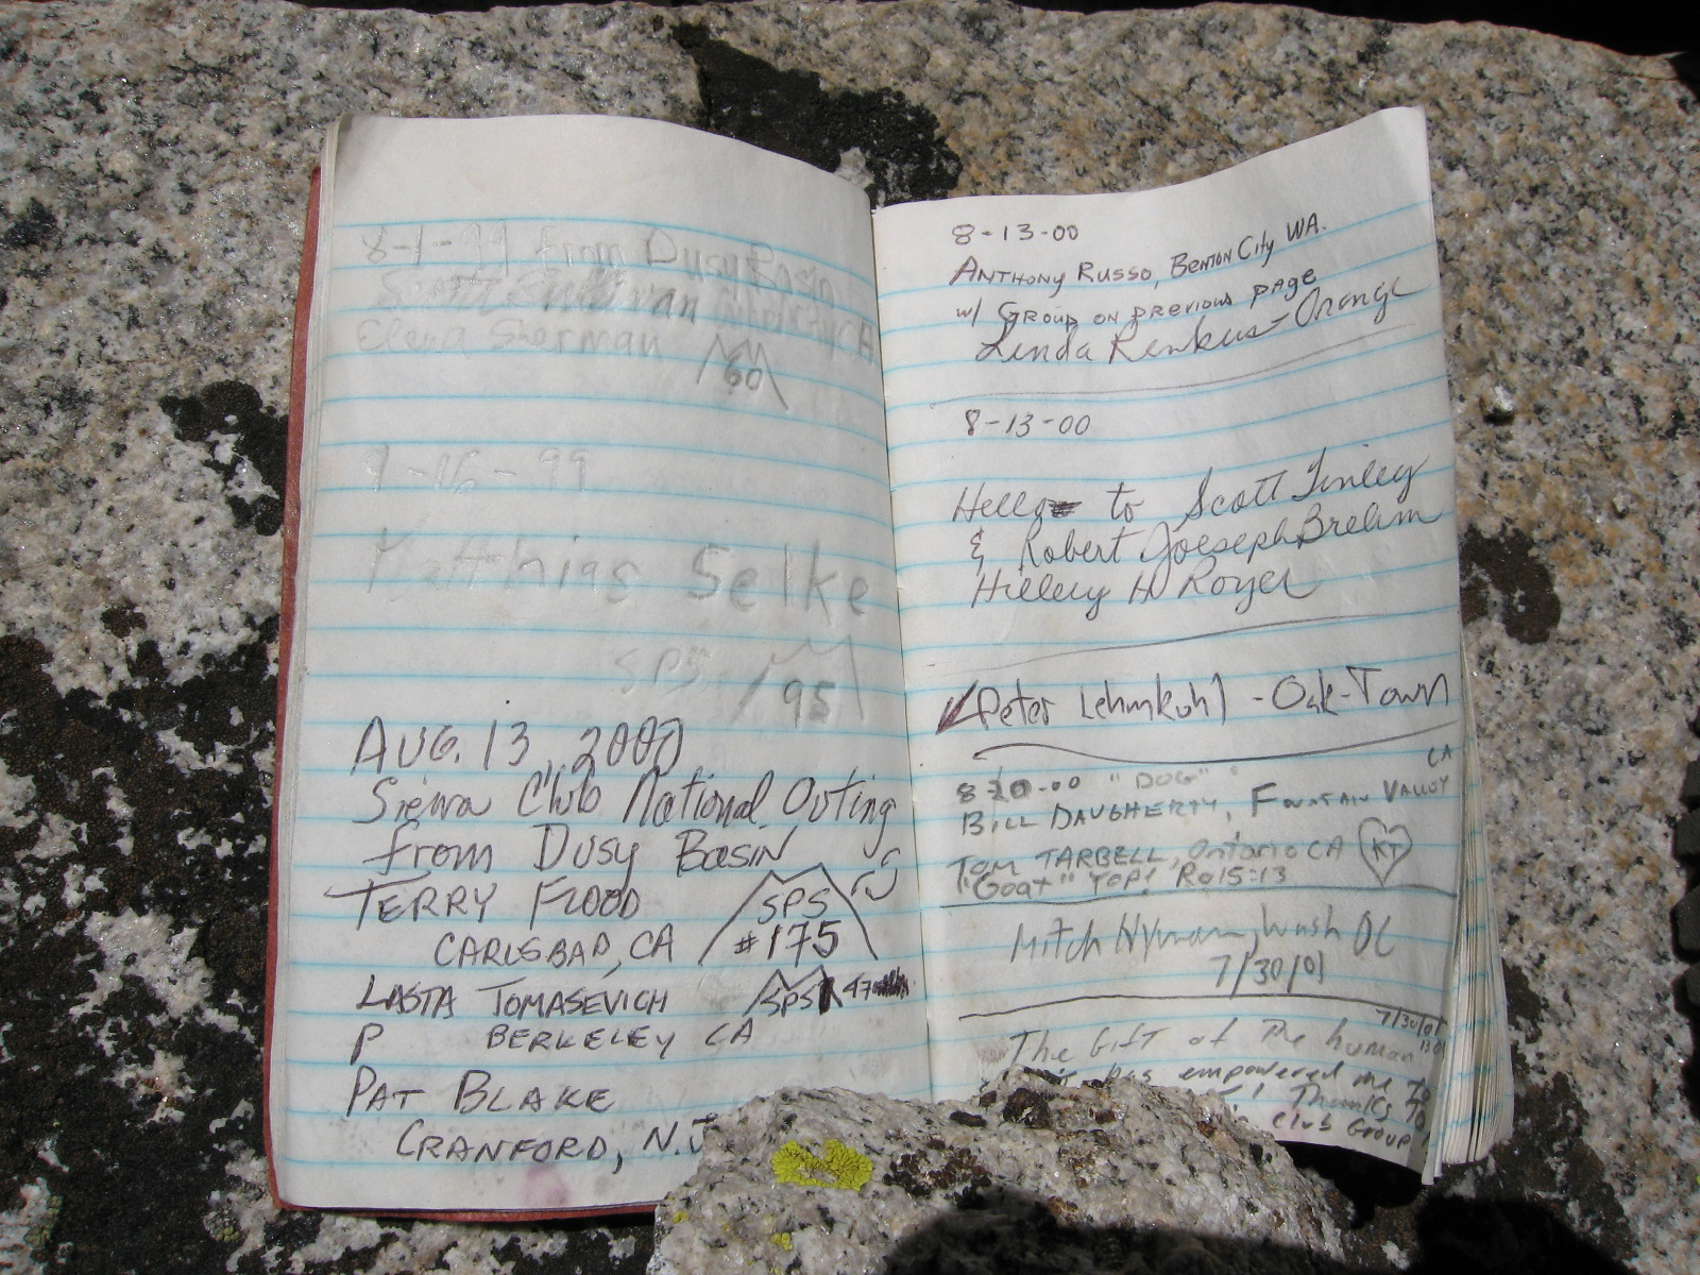 8-1-99 from Dusy Basin
Scott Sullivan
Elena Sherman
60
9-16-99
Matthias Selke
SPS
95
AUG. 13, 2000
Sierra Club National Outing
from Dusy Basin
TERRY FLOOD SPS
CARLSBAD, CA #175
LASTA TOMASEVICH SPS
P BERKELEY CA
PAT BLAKE
CRANFORD, N.J
8-13-00
ANTHONY RUSSO, BENTON City WA.
w/ GROUP ON PREVIOUS PAGE
Linda Renkus - Orange
8-13-00
Hello to Scott Finley
& Robert Joeseph Brehm
Hillery H Royer
Peter Lehmkuhl - Oak-Town
CA
8-20-00 "DOG"
BILL DAUGHERTY, FOUNTAIN VALLEY
TOM TARBELL, Ontario CA KT
"Goat" YOP! Ro 15:13
Mitch Hyman, Wash DC
7/30/01
7/30/01
The Gift of The human
has empowered me To
! Thanks TO
Club Group